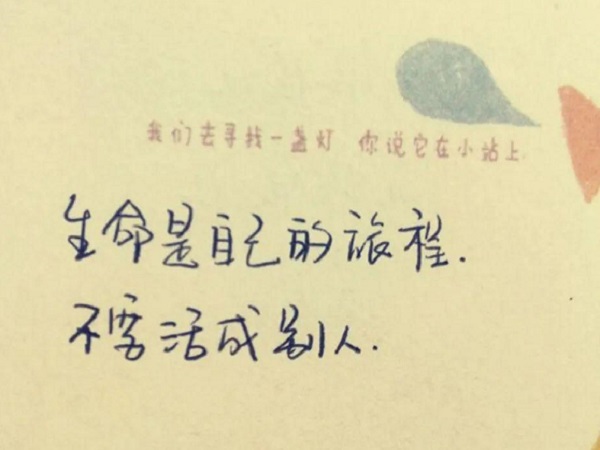 我们去寻找一盏灯 你说它在小站上
生命是自己的旅程.
不需活成别人.